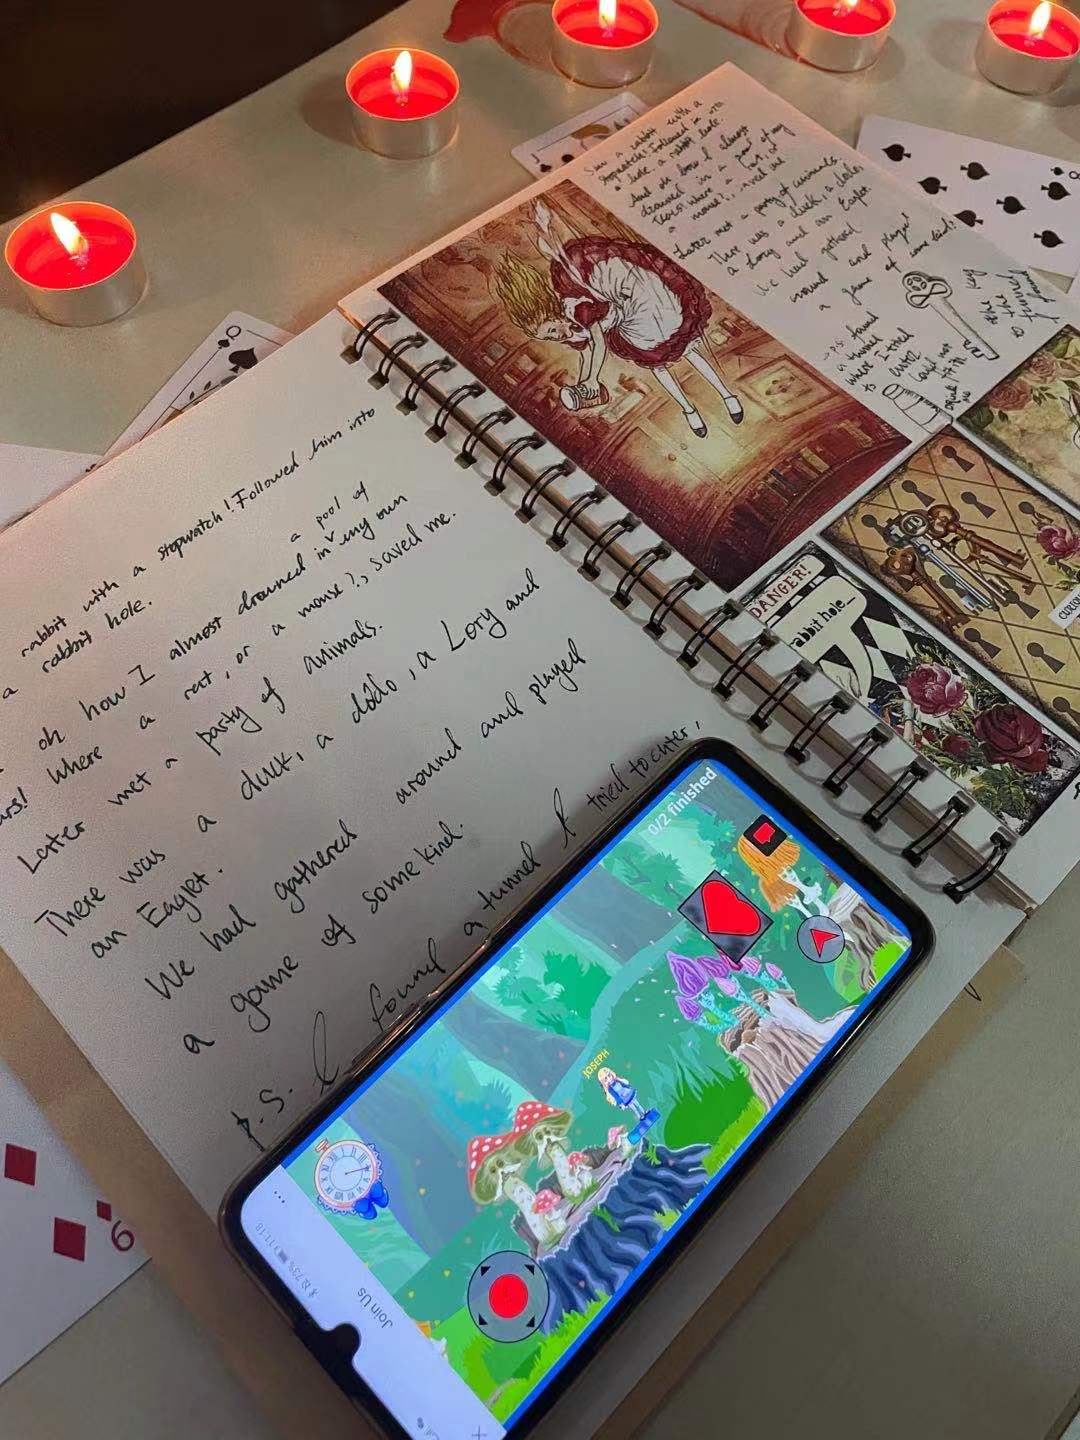 rabbit with a stopwatch! Followed him into
a rabbit hole.
oh how I almost drowned in a pool of my own
where a rat, or a mouse?, saved me.
Latter met a party of animals.
There was a duck, a dodo, a Lory and
an Eaglet.
We had gathered around and played
a game of some kind.
p.s. I found a tunnel I tried to enter,
Saw a rabbit with a
stopwatch! Followed him into
a rabbit hole.
And oh how I almost
drowned in a pool of my
tears! where a rat, or
a mouse?, saved me
Later met a party of animals
There was a duck, a dodo,
a Lory and an Eaglet
We had gathered
around and played
a game of some kind!
p.s. found
a tunnel
where I tried
to enter
could not
fit
the key
to the
DANGER!
rabbit hole_
Q
J
Q
9
0/2 finished
JOSEPH
Join Us
11:18
73%
...